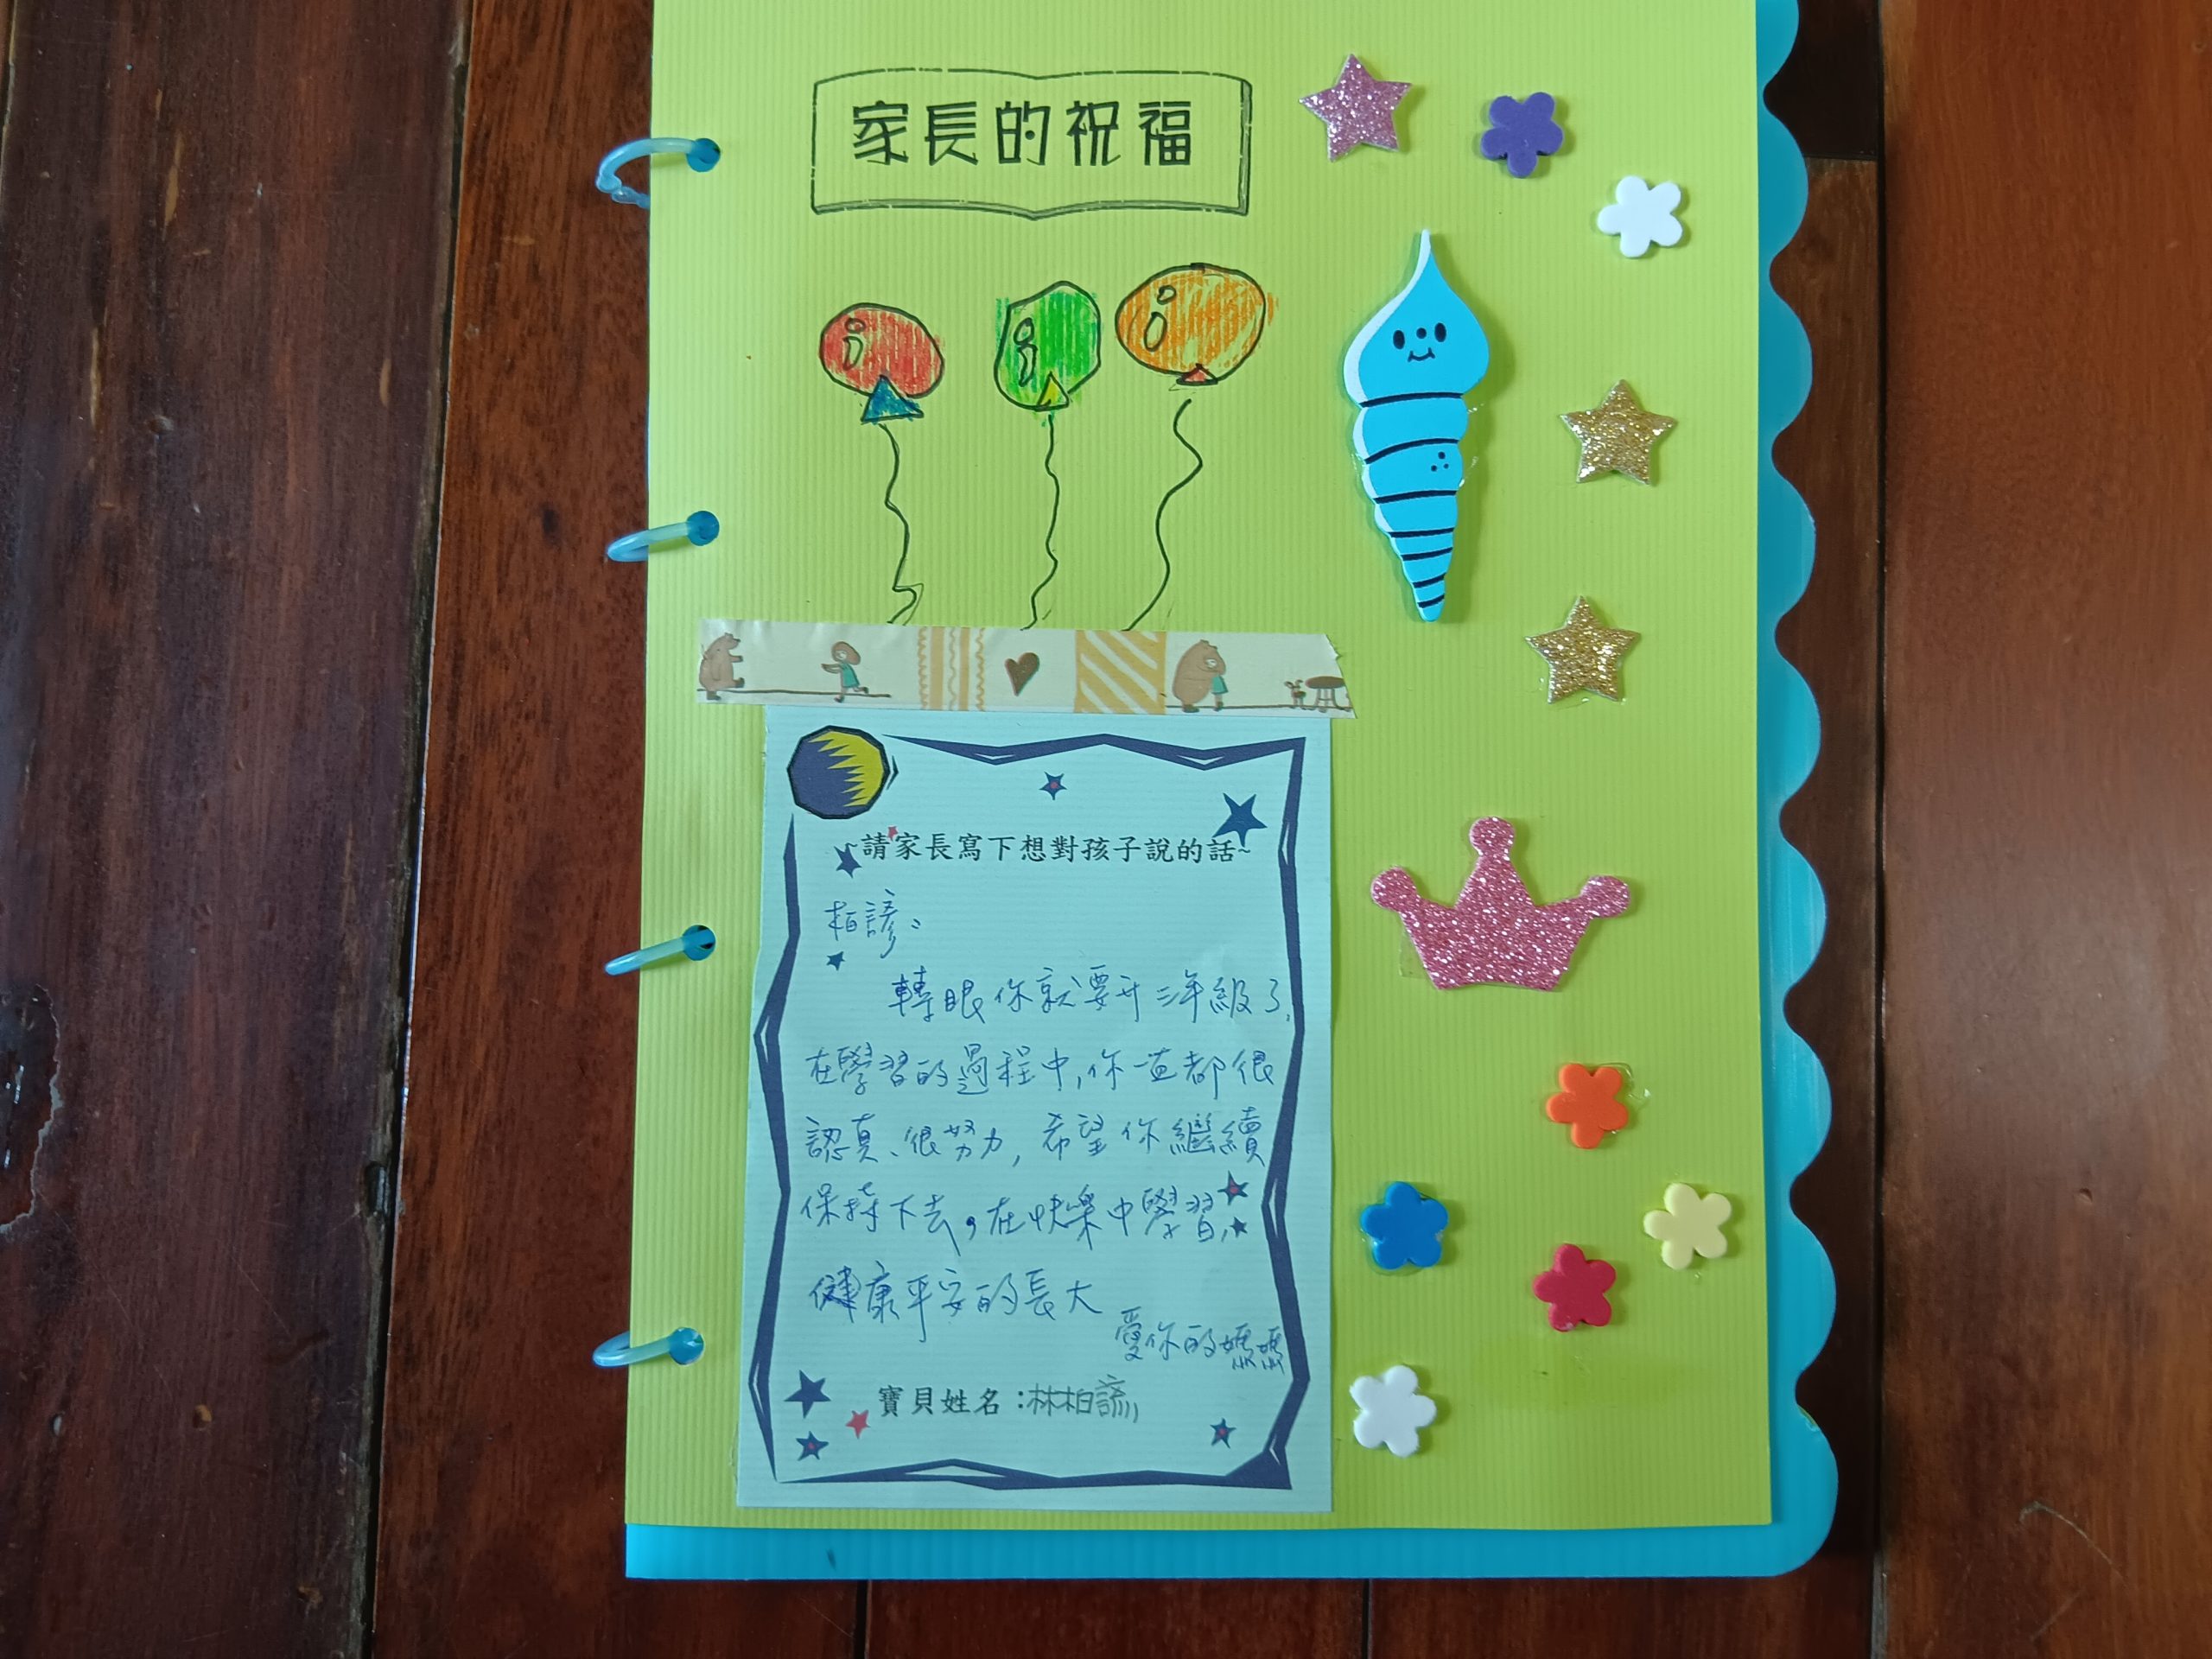 家長的祝福
~請家長寫下想對孩子說的話~
柏諺：
轉眼你就要升三年級了,
在學習的過程中,你一直都很
認真、很努力,希望你繼續
保持下去,在快樂中學習,
健康平安的長大
愛你的媽媽
寶貝姓名：林柏諺